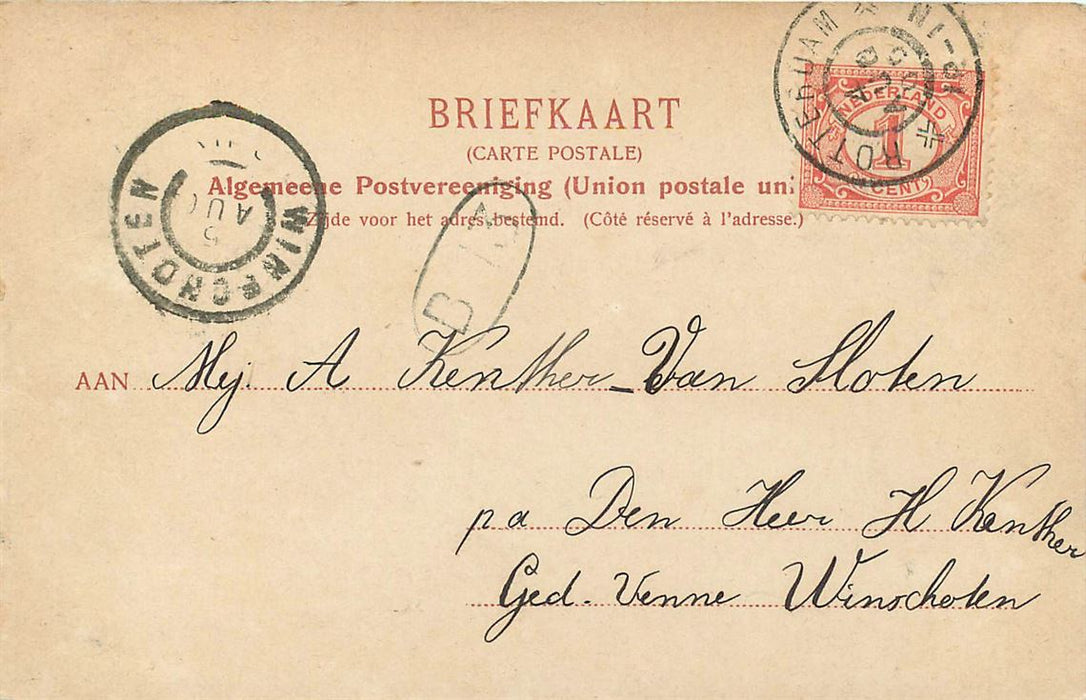 BRIEFKAART
(CARTE POSTALE)
Algemeene Postvereeniging (Union postale uni
Zijde voor het adres bestemd. (Côté réservé à l'adresse.)
NEDERLAND
1
CENT
ROTTERDAM
WINSCHOTEN
5
AUG
AAN Mej. A Kenther-Van Sloten
pa Den Heer H Kenther
Ged. Venne Winschoten